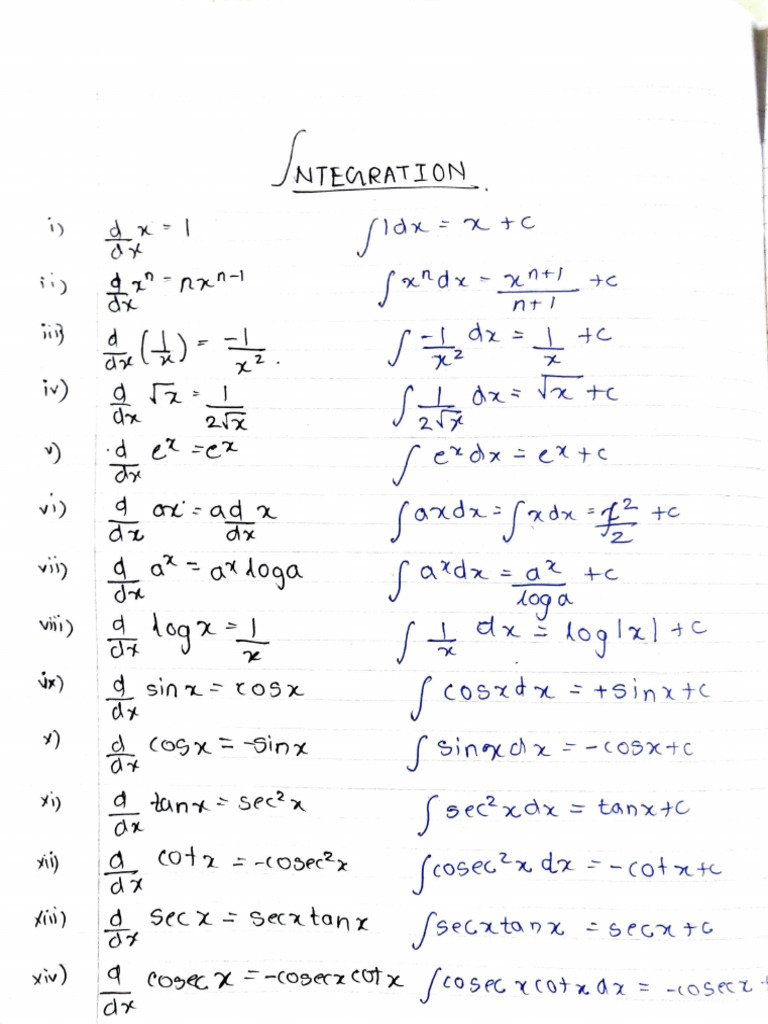 ∫NTEGRATION.
i) d/dx x = 1 ∫1dx = x + c
ii) d/dx xⁿ = nxⁿ⁻¹ ∫xⁿdx = xⁿ⁺¹/n+1 + c
iii) d/dx (1/x) = -1/x². ∫-1/x² dx = 1/x + c
iv) d/dx √x = 1/2√x ∫1/2√x dx = √x + c
v) d/dx eˣ = eˣ ∫eˣdx = eˣ + c
vi) d/dx ax = a d/dx x ∫axdx = ∫xdx = x²/2 + c
vii) d/dx aˣ = aˣ loga ∫aˣdx = aˣ/loga + c
viii) d/dx logx = 1/x ∫1/x dx = log|x| + c
ix) d/dx sinx = cosx ∫cosxdx = +sinx+c
x) d/dx cosx = -sinx ∫sinxdx = -cosx+c
xi) d/dx tanx = sec²x ∫sec²xdx = tanx+c
xii) d/dx cotx = -cosec²x ∫cosec²x dx = -cotx+c
xiii) d/dx secx = secxtanx ∫secxtanx = secx+c
xiv) d/dx cosecx = -cosecxcotx ∫cosecxcotxdx = -cosecx +